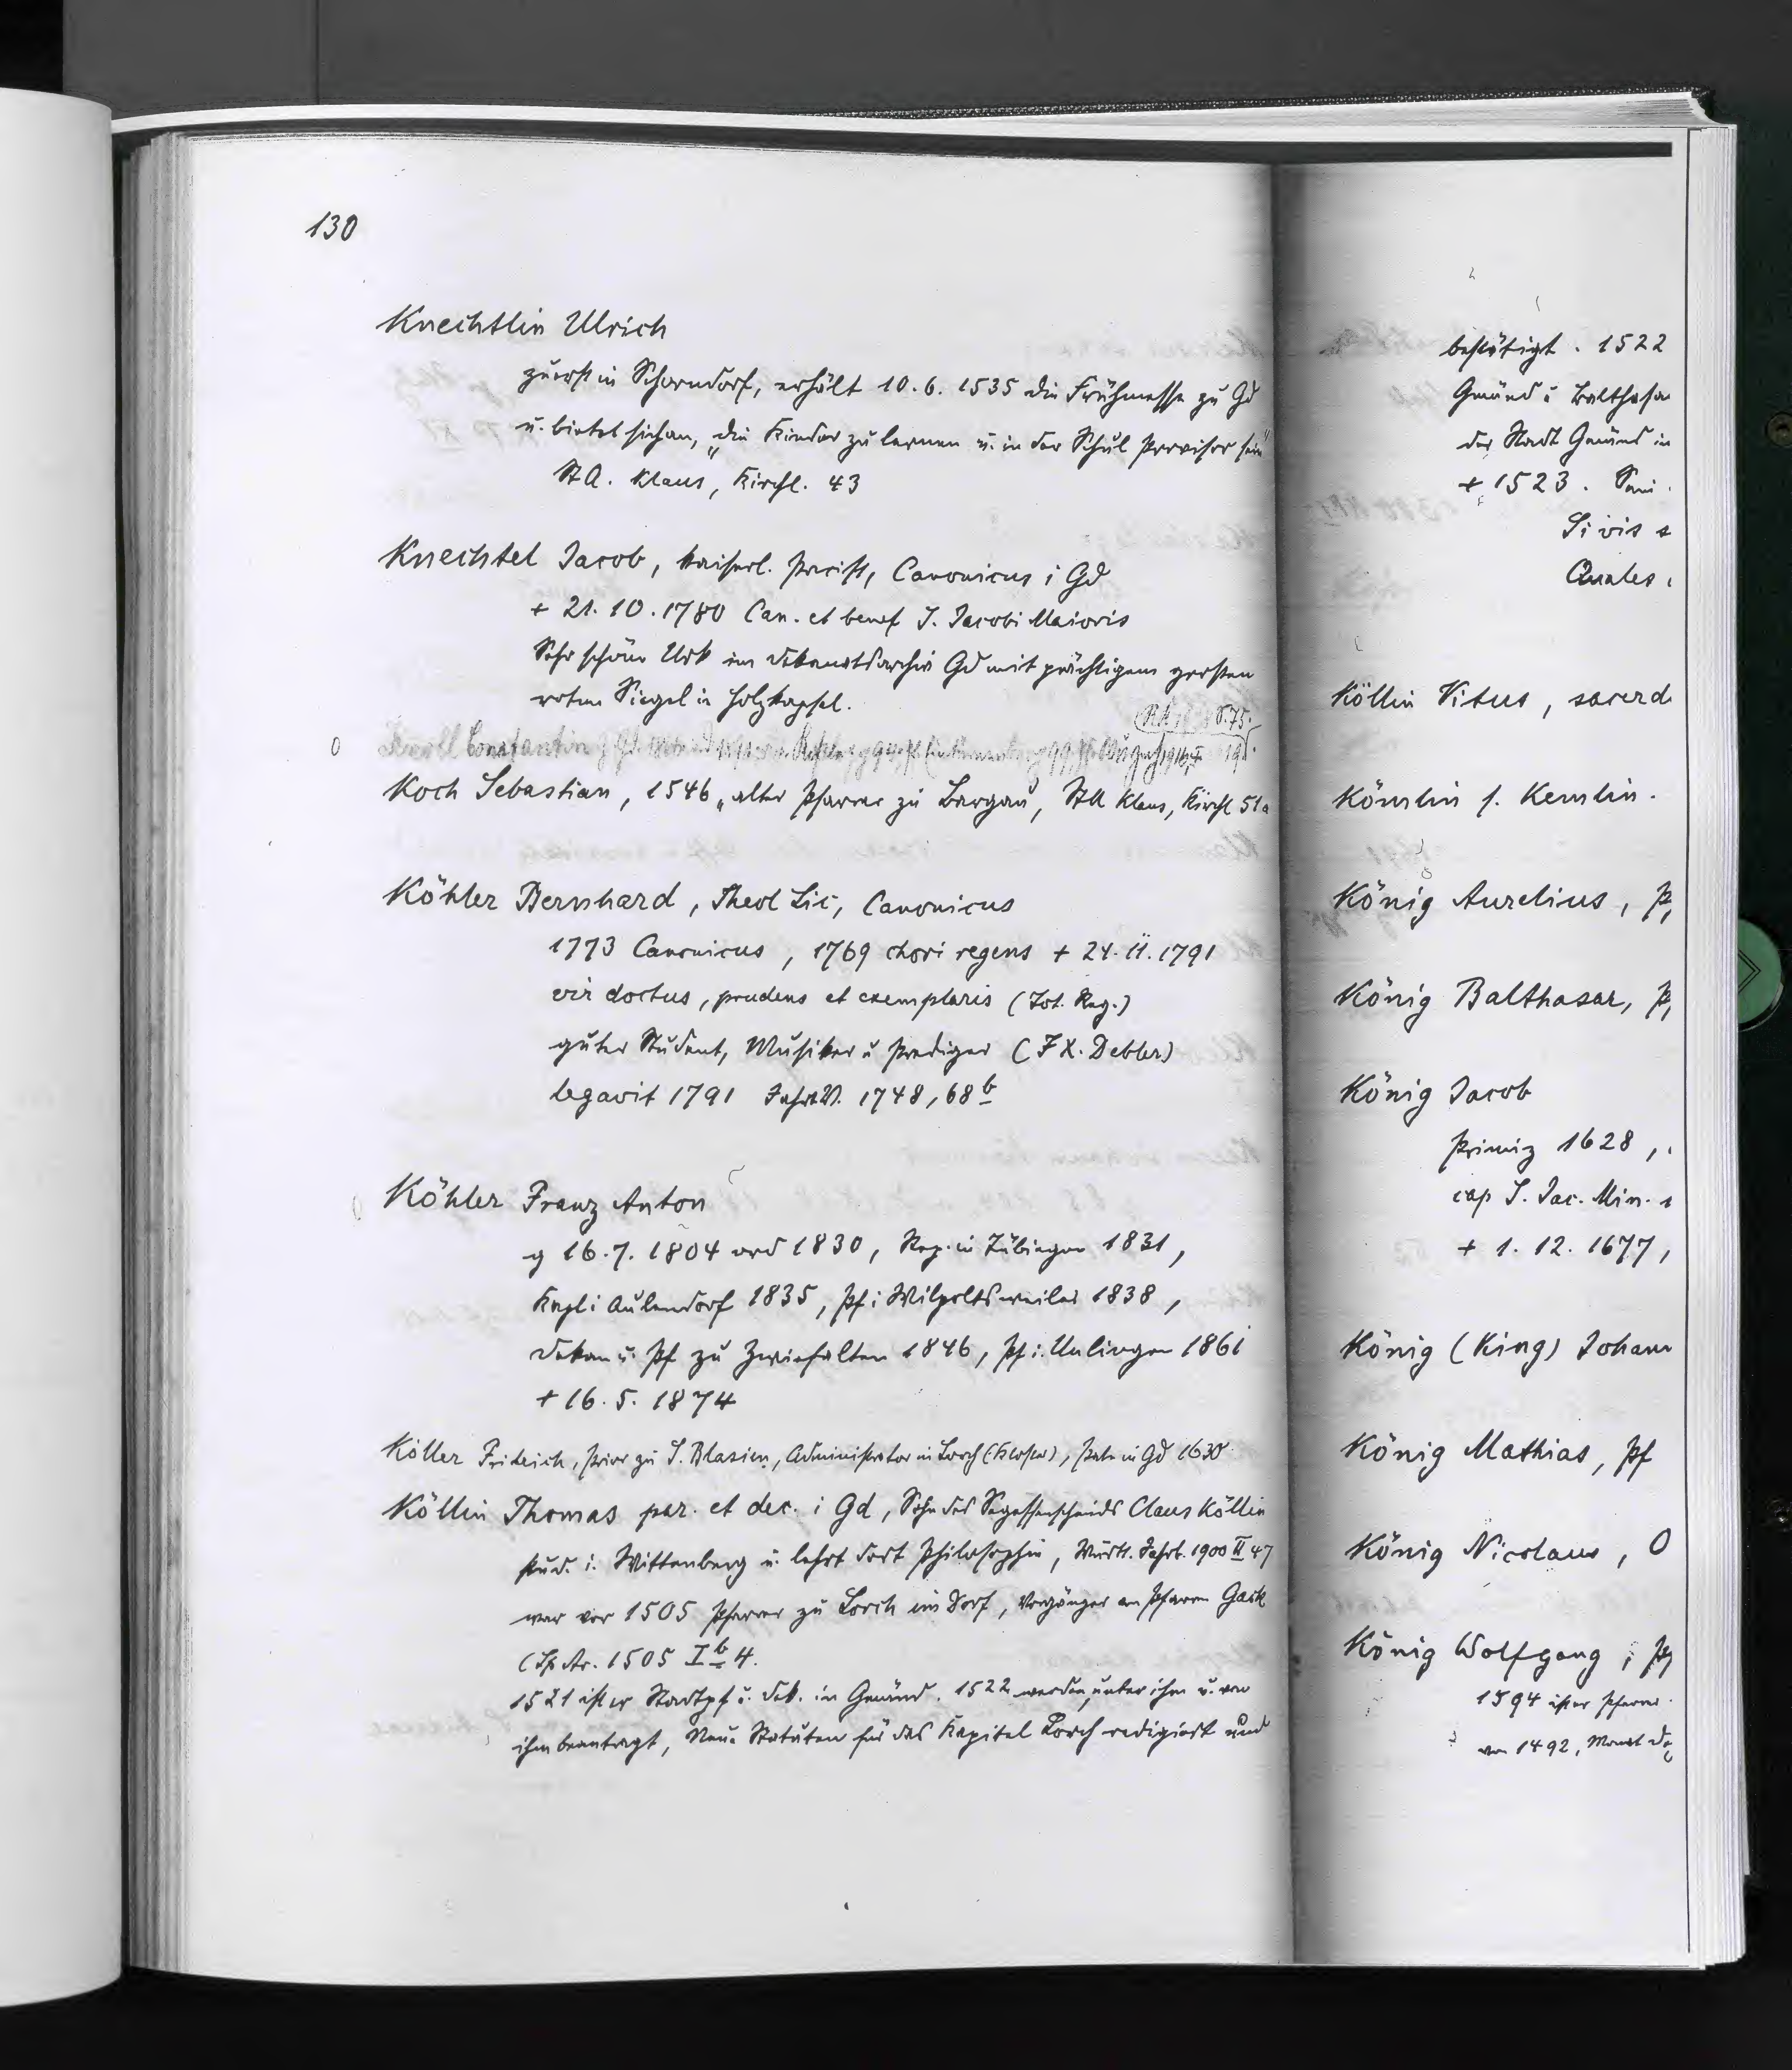 130
Knechtlin Ulrich
zuerst in Schorndorf, erhält 10.6.1535 die Frühmesse zu Gd
u. bietet sich an, „die Kinder zu lernen u. in der Schul Provisor sein"
StA. Klaus, Kirchl. 43
Knechtel Jacob, kaiserl. Precist, Canonicus i Gd
+ 21.10.1780 Can. et benef S. Jacobi Maioris
Sehr schöne Urk im Dekanatsarchiv Gd mit prächtigem grossen
roten Siegel in Holzkapsel.
S.75.
0 Knoll Constantin g
Koch Sebastian, 1546 „alter Pfarrer zu Bargau, StA Klaus, Kirchl 51a
Köhler Bernhard, Theol Lic, Canonicus
1773 Canonicus, 1769 chori regens + 24.11.1791
vir doctus, prudens et exemplaris (Tot. Reg.)
guter Student, Musiker u Prediger (F X. Debler)
legavit 1791 1748, 68b
Köhler Franz Anton
g 16.7.1804 ord 1830, Rep. in Tübingen 1831,
Kapl i Aulendorf 1835, Pf i Wilpoltsweiler 1838,
Dekan u. Pf zu Zwiefalten 1846, Pf i. Unlingen 1861
+ 16.5.1874
Köller Fridrich, Prior zu S. Blasien, Administrator in Lorch (Kloster), Pate in Gd 1630
Köllin Thomas par. et dec. i Gd, Sohn des Segessenschmids Claus Köllin
stud. i. Wittenberg u. lehrt dort Philosophie, Württ. Jahrb. 1900 II 47
war vor 1505 Pfarrer zu Lorch im Dorf, Vorgänger am Pfarrer Gack
1505 Ib 4.
1521 ist er Stadtpf u. Dek. in Gmünd. 1522 werden, unter ihm u. von
ihm beantragt, Neue Statuten für das Kapitel Lorch redigiert und
bestätigt. 1522
Gmünd u Balthasar
der Stadt Gmünd in
+ 1523.
Si vis s
Quales
Köllin Vitus, sacerd
Kömlin s. Kemlin.
König Aurelius, P
König Balthasar, P
König Jacob
Primiz 1628,
cap S. Jac. Min.
+ 1.12.1677,
König (King) Johann
König Mathias, Pf
König Nicolaus, O
König Wolfgang, P
1594 ist er Pfarrer
von 1492, Monat